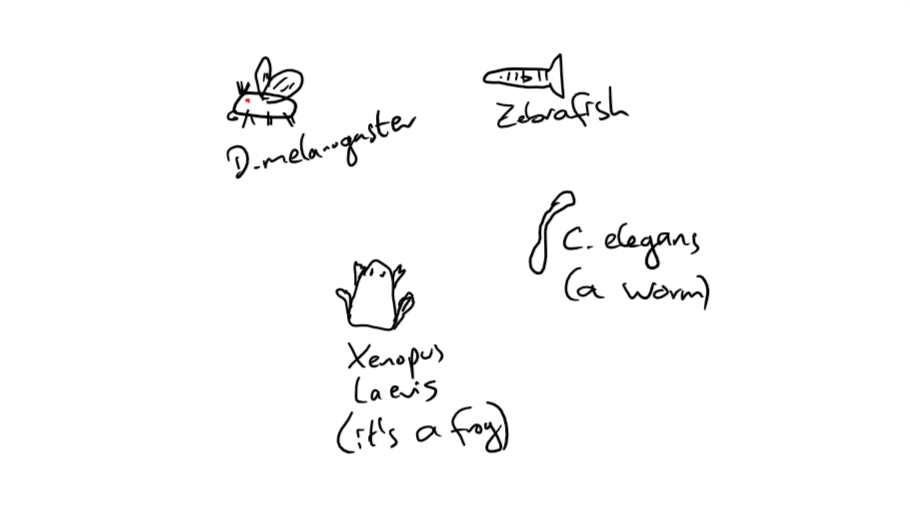 D. melanogaster
Zebrafish
C. elegans
(a worm)
Xenopus
Laevis
(it's a frog)